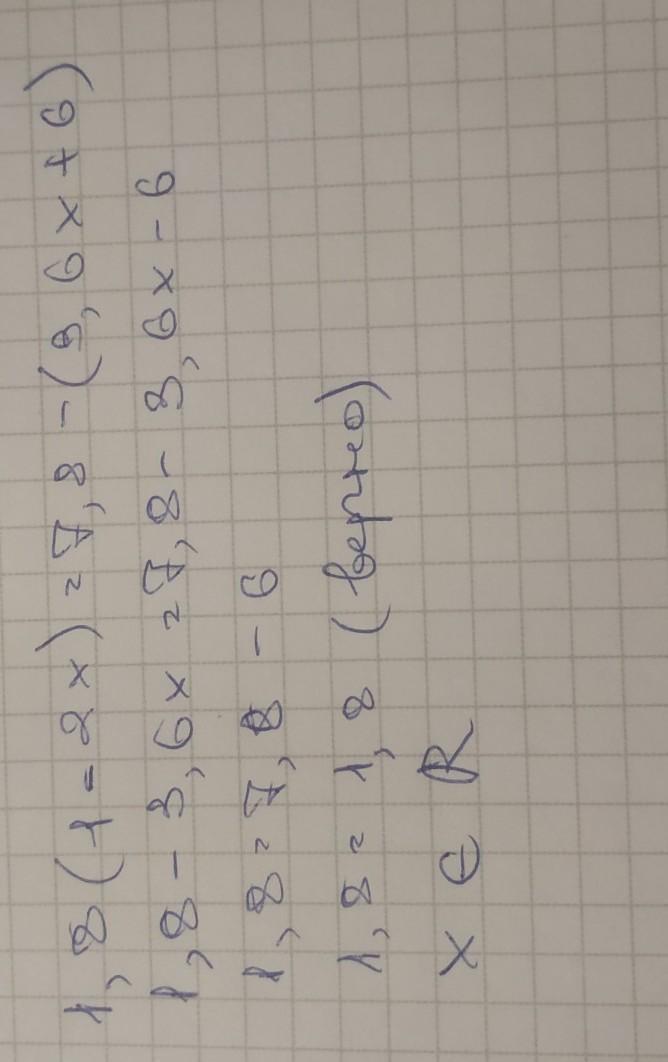 1,8(1-2x)=7,8-(3,6x+6)
1,8-3,6x=7,8-3,6x-6
1,8=7,8-6
1,8=1,8 (верно)
x ∈ R